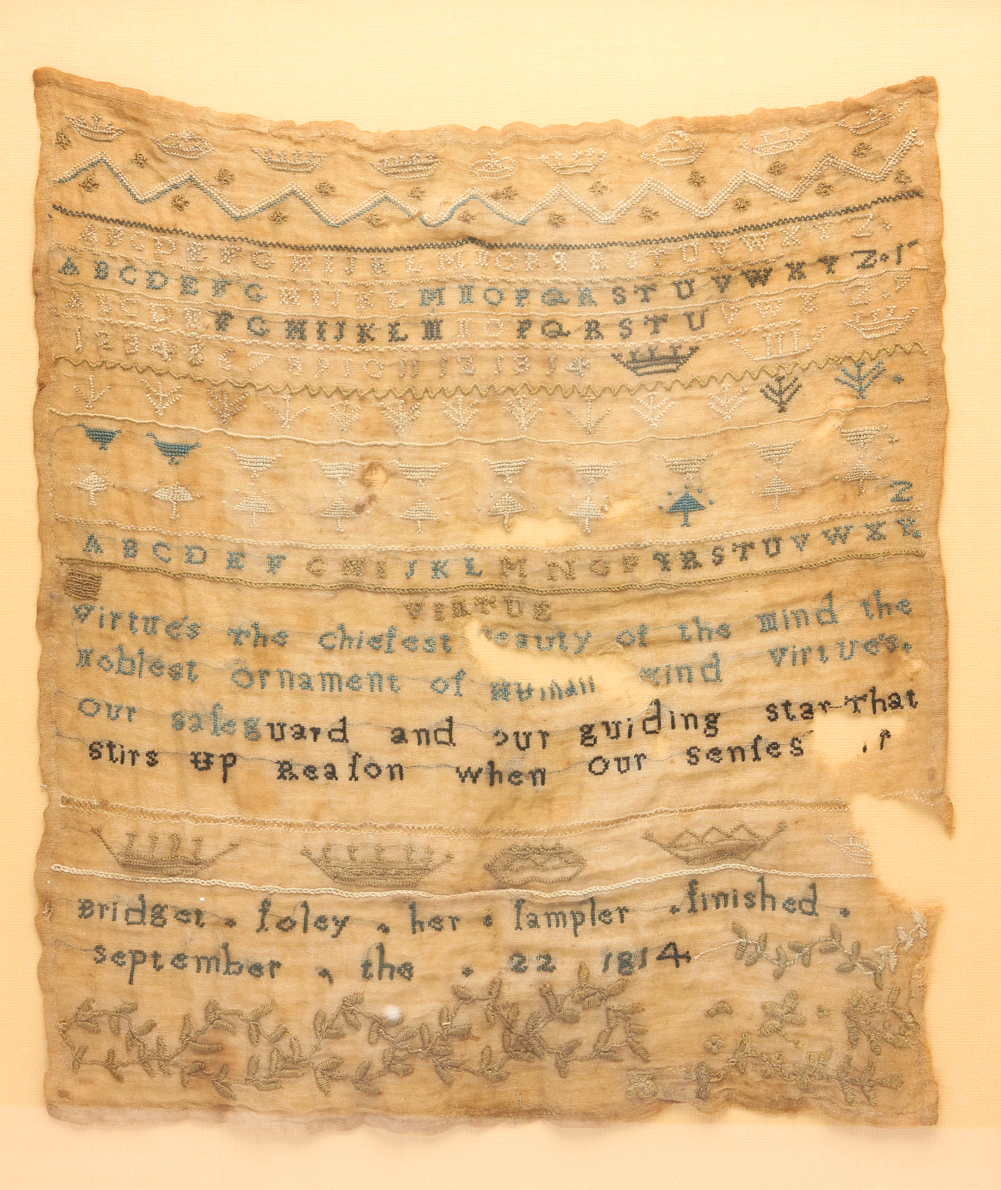 A B C D E F G H I J K L M N O P Q R S T U V W X Y Z
A B C D E F G H I J K L M N O P Q R S T U V W X Y Z
A B C D E F G H I J K L M N O P Q R S T U V W X Y Z
1 2 3 4 5 6 7 8 9 10 11 12 13 14
Z
A B C D E F G H I J K L M N O P Q R S T U V W X Y
VIRTUE
Virtue's The chiefest eauty of the Mind the
Noblest Ornament of Human kind Virtue's
Our safeguard and our guiding star That
stirs Up Reaſon when Our Senſes
Bridget . foley . her . ſampler . finished .
September . the . 22 1814